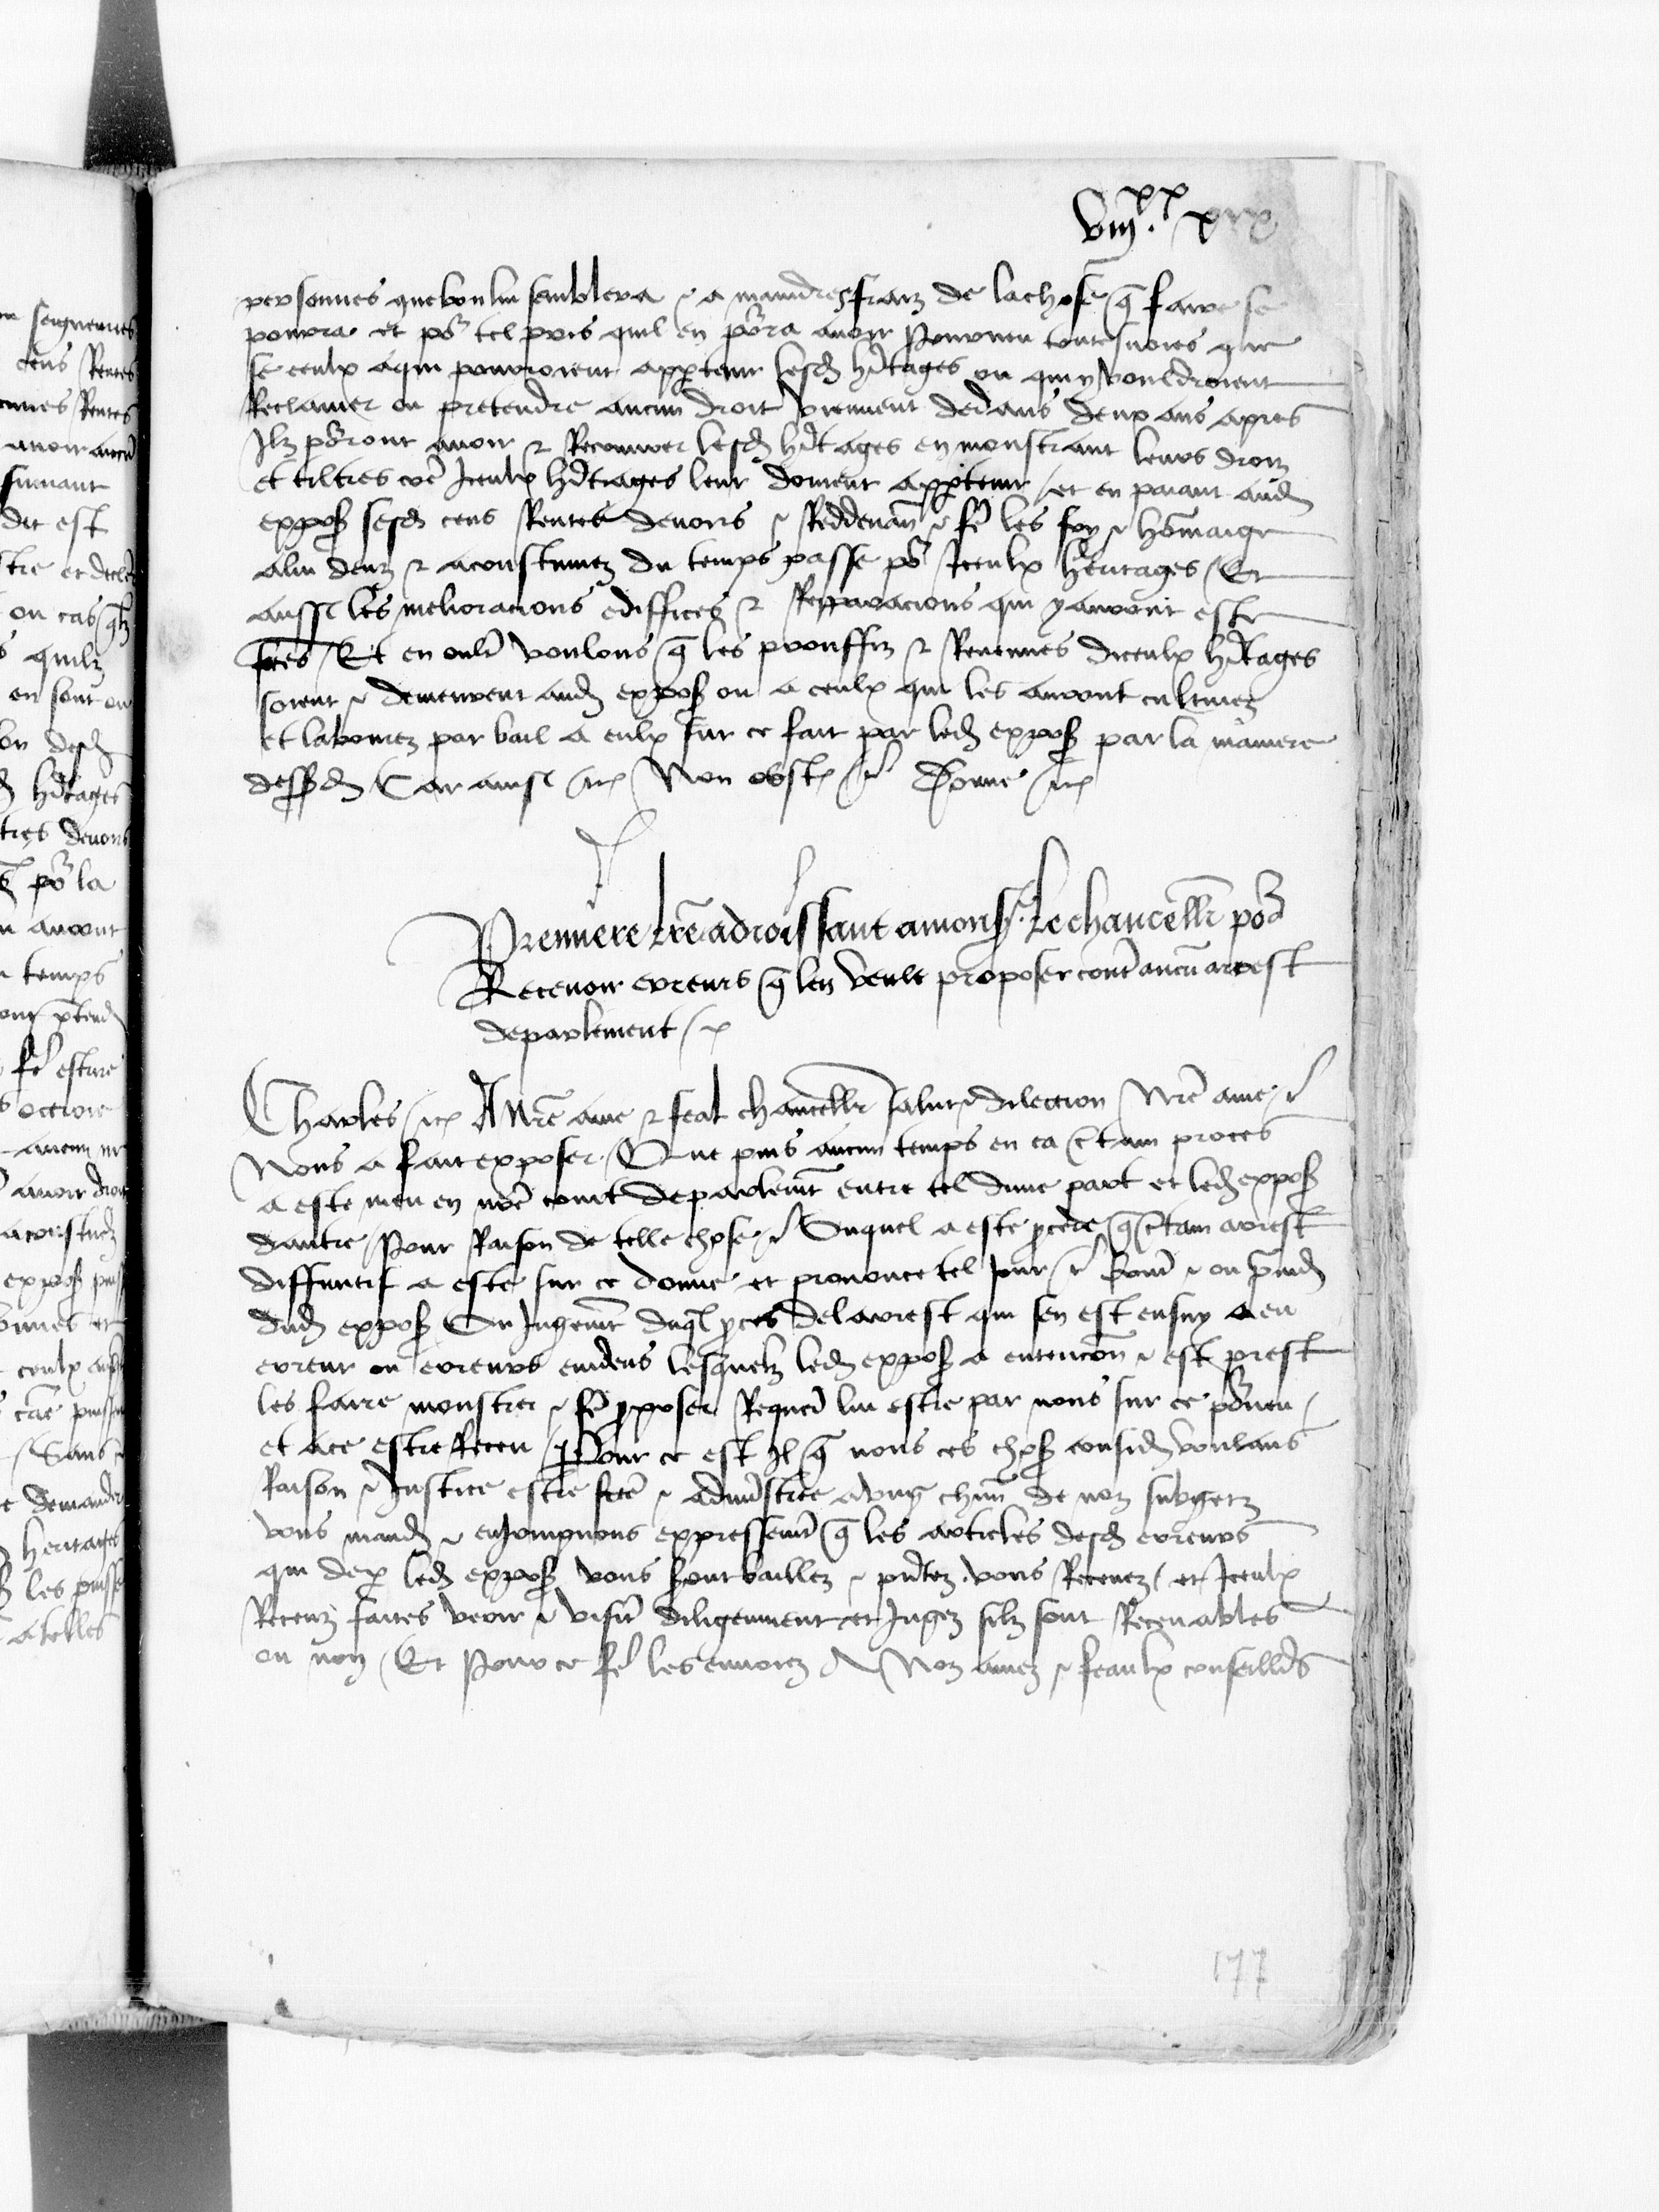 viij.xx xix
personnes que bon lui semblera & a maindres fraiz de la chose q̃ faire se
pourra et po^r tel pris quil en po^rra avoir Pourveu toutesvoies que
se ceulx a qui pourroient app̃tenir lesd̃ h̃itages ou qui y vouldroient
Reclamer ou pretendre aucun droit viennent dedans deux ans apres
Ilz po^rront avoir & Recouvrer lesd̃ h̃itages en monstrant leurs droiz
et tiltres co͂e Iceulx h̃itages leur doivent app̃tenir / et en paiant aud̃
expos̃ sesd̃ cens Rentes devoirs & Reddevan̄ & f̃e les foy & ho͂maige
a lui deuz & acoustumez du temps passe po^r Iceulx heritages / Et
aussi les melioracions ediffices & Repparacions qui y auront este
f̃tes / Et en oult̃ voulons q̃ les prouffiz & Revenues diceulx h̃itages
soient & demeurent aud̃ expos̃ ou a ceulx qui les auront cultivez
et labourez par bail a eulx sur ce fait par led̃ expos̃ par la maniere
dessusd̃ Car ainsi / etc̃ Non obst̃ / etc̃ Donne / etc̃
Premiere l̃re adroissant a mons^r. le chancell̃r po^r
Recevoir erreurs q̃ len veult proposer cont̃ aucu͂ arrest
de parlement /
Charles / etc̃ A N̄re ame & feal chancell̃r salut & dilection N̄re ame / etc̃
Nous a fait exposer / Que puis aucun temps en ca c̃tain proces
a este meu en n̄re court de parlem̃t entre tel dune part et led̃ expos̃
dautre / Pour Raison de telle chose / etc̃ Ouquel a este p̃cede q̃ c̃tain arrest
diffinitif a este sur ce donne et prononce tel Jour / etc̃ Cont̃ & ou p̃iud̃
dud̃ expos̃ Ou Jugem̃t duq̃l p̃ces de larrest qui sen est ensuy a eu
erreur ou erreurs evidens lesquelz led̃ expos̃ a entencio͂n & est prest
les faire monstrer & f̃e p̃poser Requer̃ lui estre par nous sur ce po^rveu /
et a ce estre Receu / Pour ce est Il q̃ nous ces chos̃ consid̃ voulans
Raison & Justice estre f̃te & admi͂stree a ung ch̄un de noz subgetz
vous mand̃ & enjoingnons expressem̃t q̃ les articles desd̃ erreurs
qui de p̃ led̃ expos̃ vous seront baillez & p̃ntez vous Recevez / et Iceulx
Receuz faites veoir & visit̃ diligemment et Jugez silz sont Recevables
ou non / Et Pour ce f̃e les envoiez A Noz amez & feaulx conseill̃rs
177